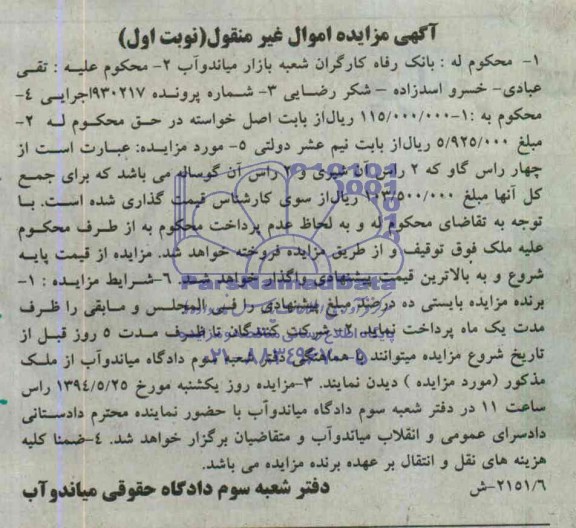 آگهی مزایده اموال غیر منقول(نوبت اول)
۱- محکوم له : بانک رفاه کارگران شعبه بازار میاندوآب ۲- محکوم علیه : تقی
عبادی- خسرو اسدزاده – شکر رضایی ۳- شماره پرونده ۹۳۰۲۱۷اجرایی ۴-
محکوم به :۱-۱۱۵/۰۰۰/۰۰۰ ریال‌از بابت اصل خواسته در حق محکوم له ۲-
مبلغ ۵/۹۲۵/۰۰۰ ریال‌از بابت نیم عشر دولتی ۵- مورد مزایده: عبارت است از
چهار راس گاو که ۲ راس آن شیری و ۲ راس آن گوساله می باشد که برای جمع
کل آنها مبلغ ۱۲۳/۵۰۰/۰۰۰ ریال‌از سوی کارشناس قیمت گذاری شده است. با
توجه به تقاضای محکوم له و به لحاظ عدم پرداخت محکوم به از طرف محکوم
علیه ملک فوق توقیف و از طریق مزایده فروخته خواهد شد. مزایده از قیمت پایه
شروع و به بالاترین قیمت پیشنهادی واگذار خواهد شد. ۶-شرایط مزایده : ۱-
برنده مزایده بایستی ده درصد مبلغ پیشنهادی را فی المجلس و مابقی را ظرف
مدت یک ماه پرداخت نماید. ۲- شرکت کنندگان تا ظرف مدت ۵ روز قبل از
تاریخ شروع مزایده میتوانند با هماهنگی دفتر شعبه سوم دادگاه میاندوآب از ملک
مذکور (مورد مزایده ) دیدن نمایند. ۳-مزایده روز یکشنبه مورخ ۱۳۹۴/۵/۲۵ راس
ساعت ۱۱ در دفتر شعبه سوم دادگاه میاندوآب با حضور نماینده محترم دادستانی
دادسرای عمومی و انقلاب میاندوآب و متقاضیان برگزار خواهد شد. ۴-ضمنا کلیه
هزینه های نقل و انتقال بر عهده برنده مزایده می باشد.
۲۱۵۱/۶-ش
دفتر شعبه سوم دادگاه حقوقی میاندوآب
ParsNamadData